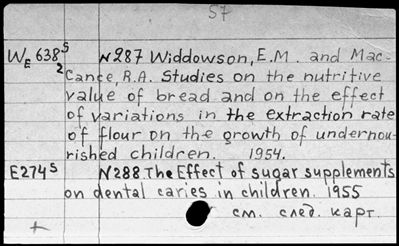 57
WE 638 5 2 N287 Widdowson, E.M. and Mac-
Cance, R.A. Studies on the nutritive
value of bread and on the effect
of variations in the extraction rate
of flour on the growth of undernou-
rished children. 1954.
E274 5 N288. The Effect of sugar supplements
on dental caries in children. 1955
см. след. карт.
+